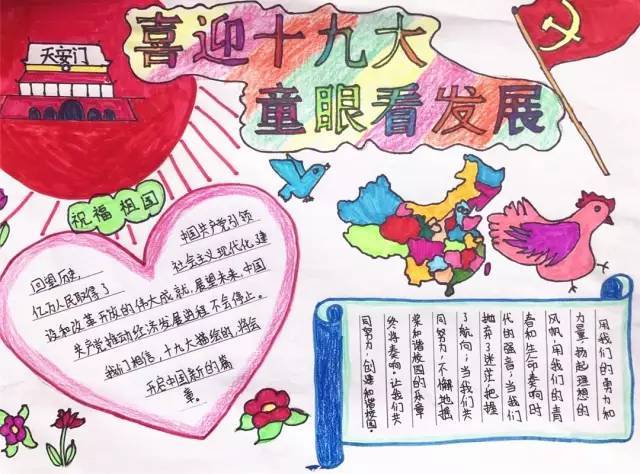 喜迎十九大
童眼看发展
天安门
祝福祖国
回望历史,
中国共产党引领
亿万人民取得了
社会主义现代化建
设和改革开放的伟大成就,展望未来,中国
共产党推动经济发展进程不会停止。
我们相信,十九大描绘的,将会
开启中国新的篇
章。
用我们的勇力和
力量,扬起理想的
风帆,用我们的青
春和生命奏响时
代的强音;当我们
抛弃了迷茫,把握
了航向;当我们共
同努力,不懈地摇
桨和谐校园的乐章
终将奏响。让我们共
同努力,创建和谐校园。